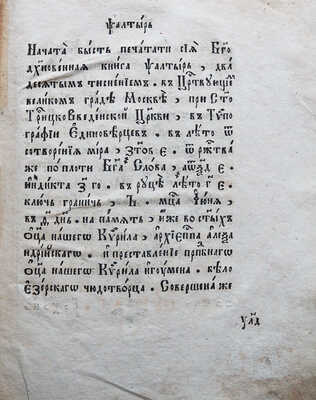 Ѱалтырь
Начата̀ бысть печатати сїѧ Бг҃о
дх҃новеннаѧ книга ѱалтырь, два
десѧтымъ тисненїемъ. въ Црⷭ҇твующемъ
великомъ градѣ Москвѣ, при Ст҃о
Трⷪ҇ицко Введенской Цр҃кви, въ Тѵпо
графїи Единовѣрцевъ. въ лѣто ѿ
сотворенїѧ мїра,
ѿ ржⷭ҇тва
же по плоти Бг҃а Слова,
їндикта го. въ руцѣ лѣто
ключь граничь, Ꙋ. мцⷭ҇а Їюнїѧ,
въ ѳ҃, дн҃ь. на памѧть, иже во ст҃ыхъ
ѻц҃а нашегѡ Кѷрила, архїепⷭ҇па алеѯа
ндрїйскагѡ. и преставленїе прпⷣбнагѡ
ѻц҃а нашегѡ Кѷрила игоумена. бѣло
езерскагѡ чюдотворца. Совершена же